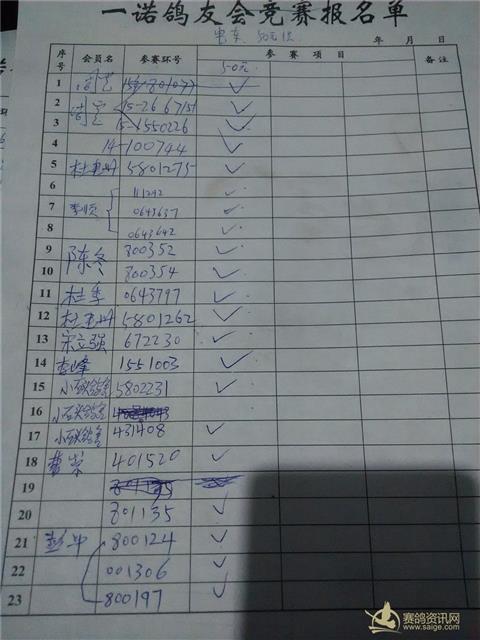 一诺鸽友会竞赛报名单
年 月 日
序号 会员名 参赛环号 参赛项目 备注
50元
1 ✓
2 15-266715 ✓
3 15-1550226 ✓
4 14-100744 ✓
5 5801275 ✓
6 111292 ✓
7 李顺 0643637 ✓
8 0643642 ✓
9 陈冬 800352 ✓
10 800354 ✓
11 杜军 0643797 ✓
12 5801262 ✓
13 宋立强 672230 ✓
14 李峰 1551003 ✓
15 5802231 ✓
16
17 431408 ✓
18 401520 ✓
19
20 801135 ✓
21 800124 ✓
22 001306 ✓
23 800197 ✓
赛鸽资讯网
www.saige.com